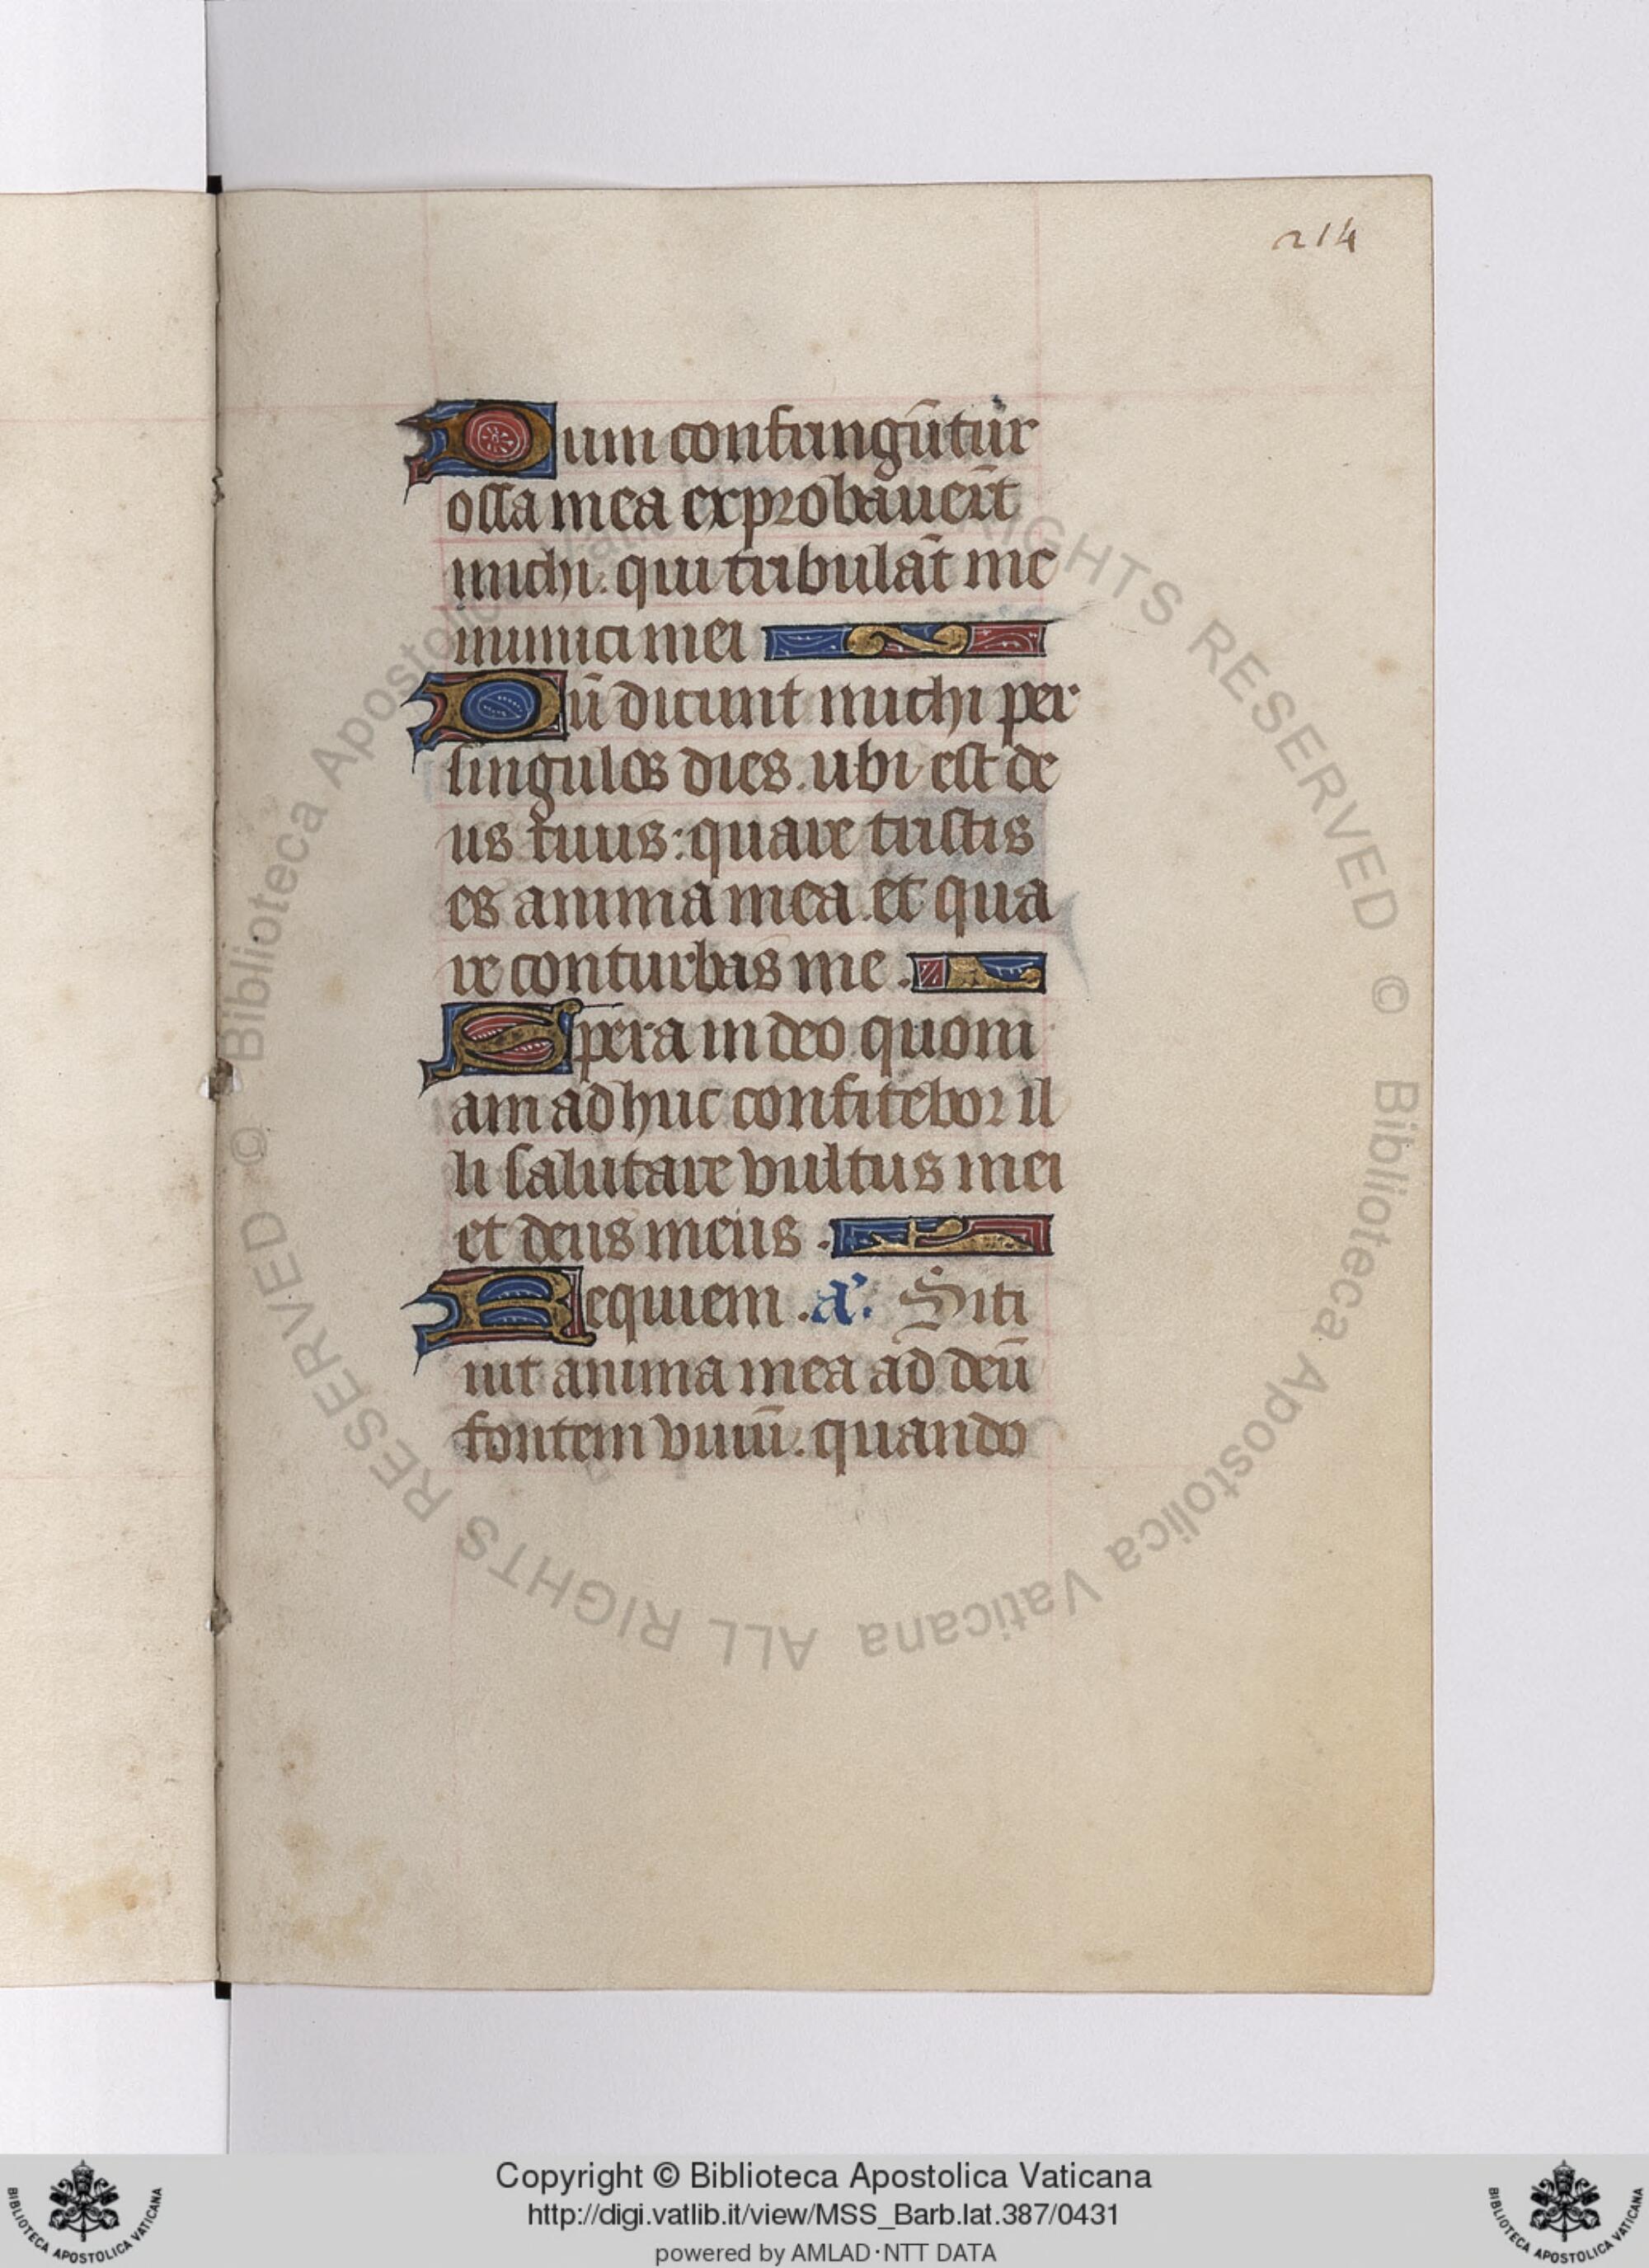 214
Dum confringūtur
ossa mea exprobauert̄
michi. qui tribulāt me
inimici mei
Dū dicunt michi per
singulos dies. ubi est de
us tuus: quare tristis
es anima mea. et qua
re conturbas me.
Spera in deo quoni
am adhuc confitebor il
li salutare vultus mei
et deus meus.
Requiem. a'. Siti
uit anima mea ad deū
fontem viuū. quando
© Biblioteca Apostolica Vaticana ALL RIGHTS RESERVED © Biblioteca Apostolica Vaticana ALL RIGHTS RESERVED
Copyright © Biblioteca Apostolica Vaticana
http://digi.vatlib.it/view/MSS_Barb.lat.387/0431
powered by AMLAD·NTT DATA
BIBLIOTECA APOSTOLICA VATICANA
BIBLIOTECA APOSTOLICA VATICANA